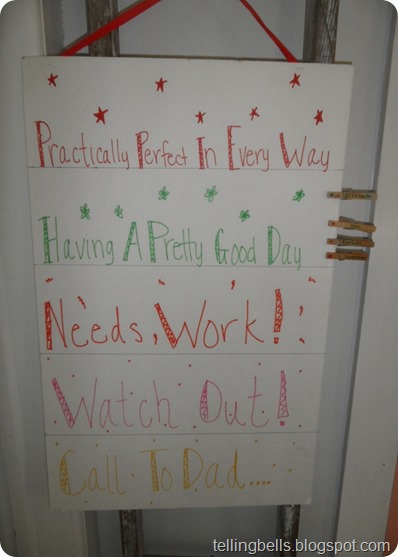 Practically Perfect In Every Way
Having A Pretty Good Day
Needs, Work!
Watch Out!
Call To Dad....
tellingbells.blogspot.com